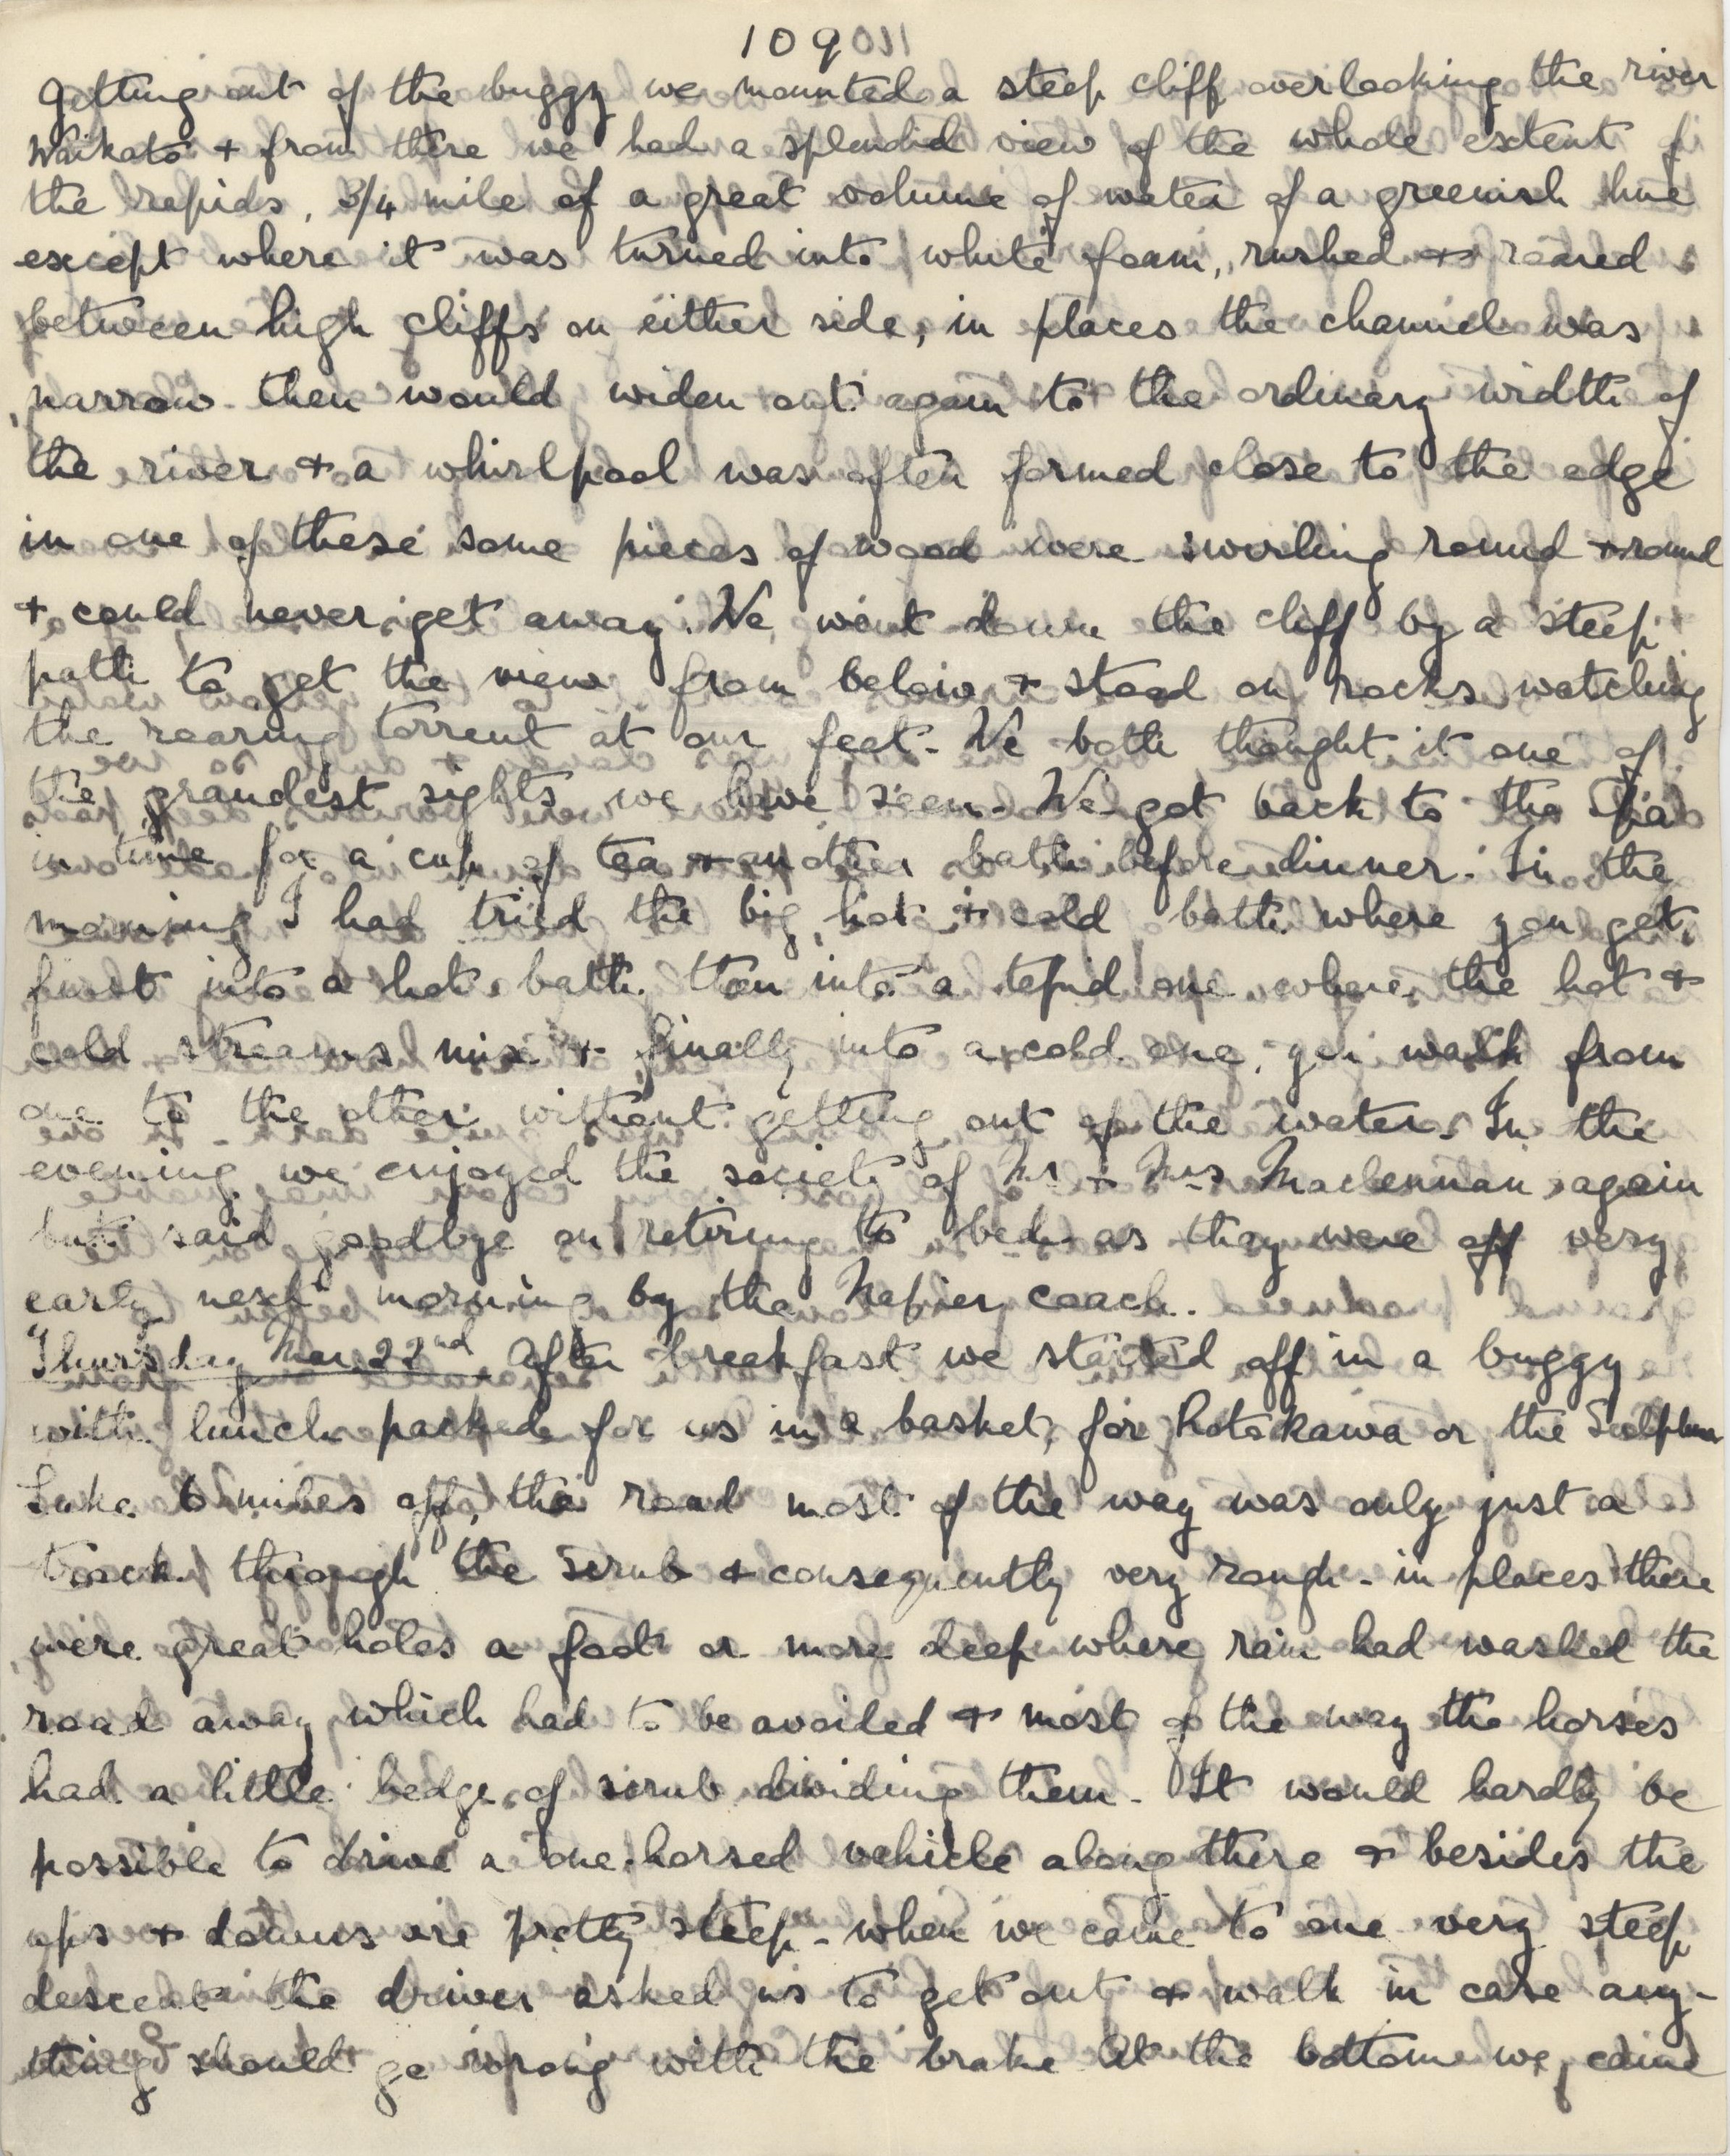 109
Getting out of the buggy we mounted a steep cliff overlooking the river
Waikato + from there we had a splendid view of the whole extent of
the rapids, 3/4 mile of a great volume of water of a greenish hue
except where it was turned into white foam, rushed + roared
between high cliffs on either side, in places the channel was
narrow then would widen out again to the ordinary width of
the river + a whirlpool was often formed close to the edge
in one of these some pieces of wood were swirling round + round
+ could never get away. We went down the cliff by a steep
path to get the view from below + stood on rocks watching
the roaring torrent at our feet - We both thought it one of
the grandest sights we have seen - We got back to the Spa
in time for a cup of tea + another bath before dinner. In the
morning I had tried the big hot + cold bath where you get
first into a hot bath then into a tepid one where the hot +
cold streams mix + finally into a cold one, you walk from
one to the other without getting out of the water. In the
evening we enjoyed the society of Mr + Mrs Maclennan again
but said goodbye on retiring to bed as they were off very
early next morning by the Napier coach.
Thursday Mar 22nd. After breakfast we started off in a buggy
with lunch packed for us in a basket, for Rotokawa or the Sulphur
Lake 6 miles off, the road most of the way was only just a
track through the scrub + consequently very rough - in places there
were great holes a foot or more deep where rain had washed the
road away which had to be avoided + most of the way the horses
had a little hedge of scrub dividing them - It would hardly be
possible to drive a one-horsed vehicle along there + besides the
ups + downs are pretty steep - when we came to one very steep
descent the driver asked us to get out + walk in case any-
thing should go wrong with the brake At the bottom we came